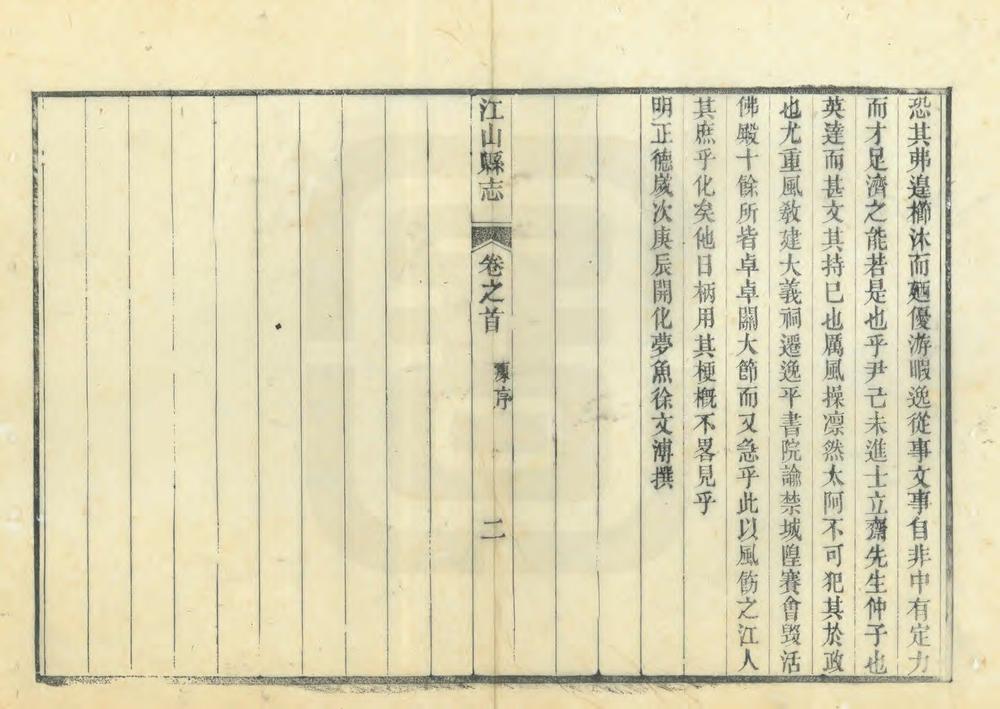 恐其弗遑櫛沐而廼優游暇逸從事文事自非中有定力
而才足濟之能若是也乎尹己未進士立齋先生仲子也
英達而甚文其持已也厲風操凛然太阿不可犯其於政
也尤重風敎建大義祠遷逸平書院諭禁城隍賽會毀活
佛殿十餘所皆卓卓關大節而又急乎此以風飭之江人
其庶乎化矣他日柄用其梗槪不畧見乎
明正德歲次庚辰開化夢魚徐文溥撰
江山縣志 卷之首 舊序 二